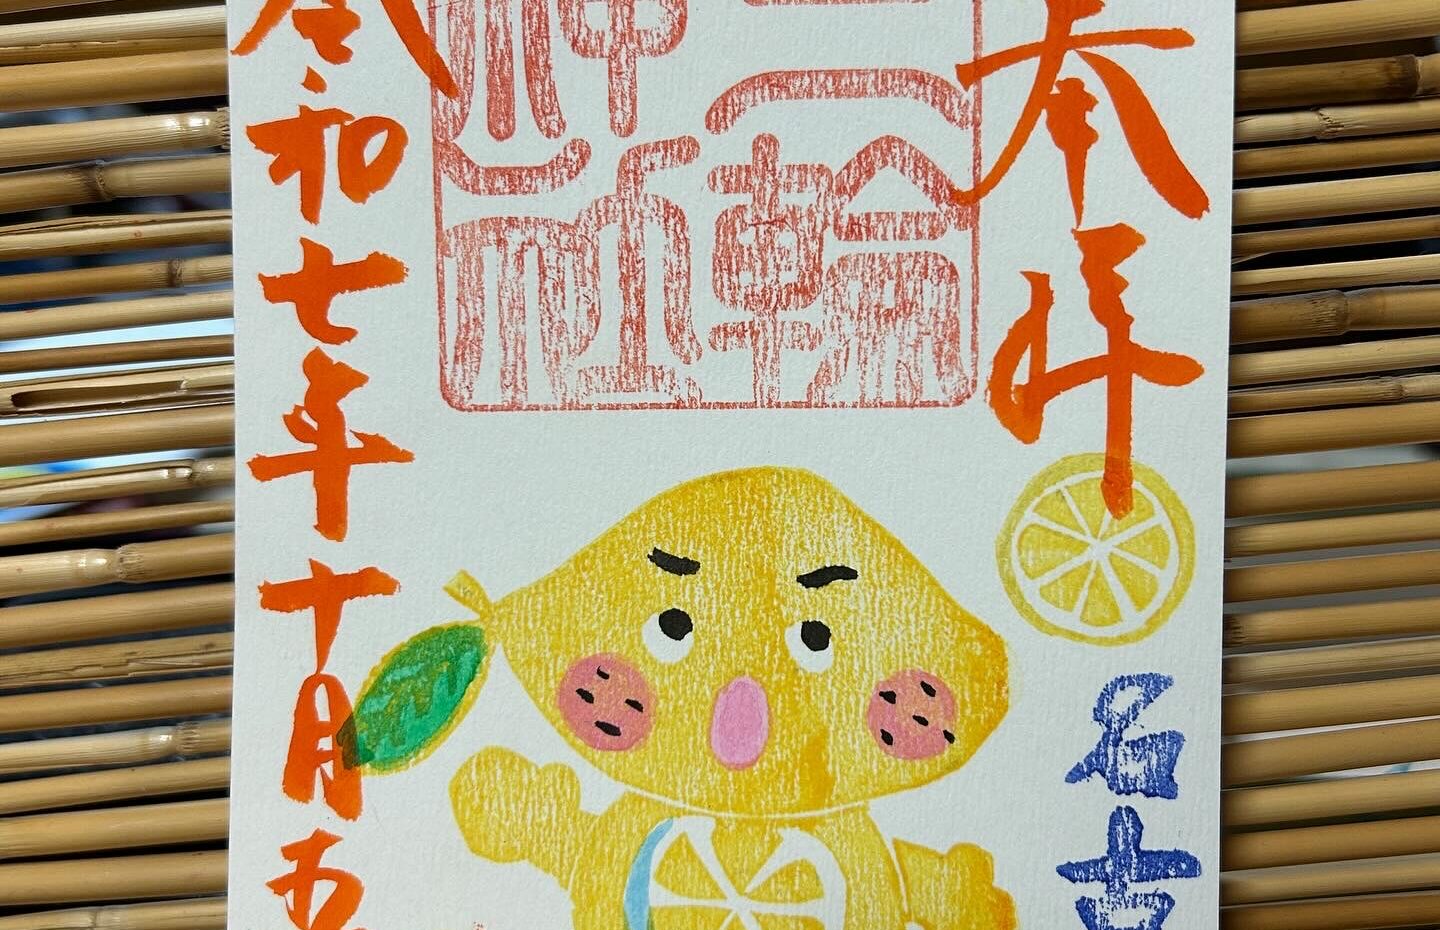 奉拝
三輪
神社
名古
令和七年十月